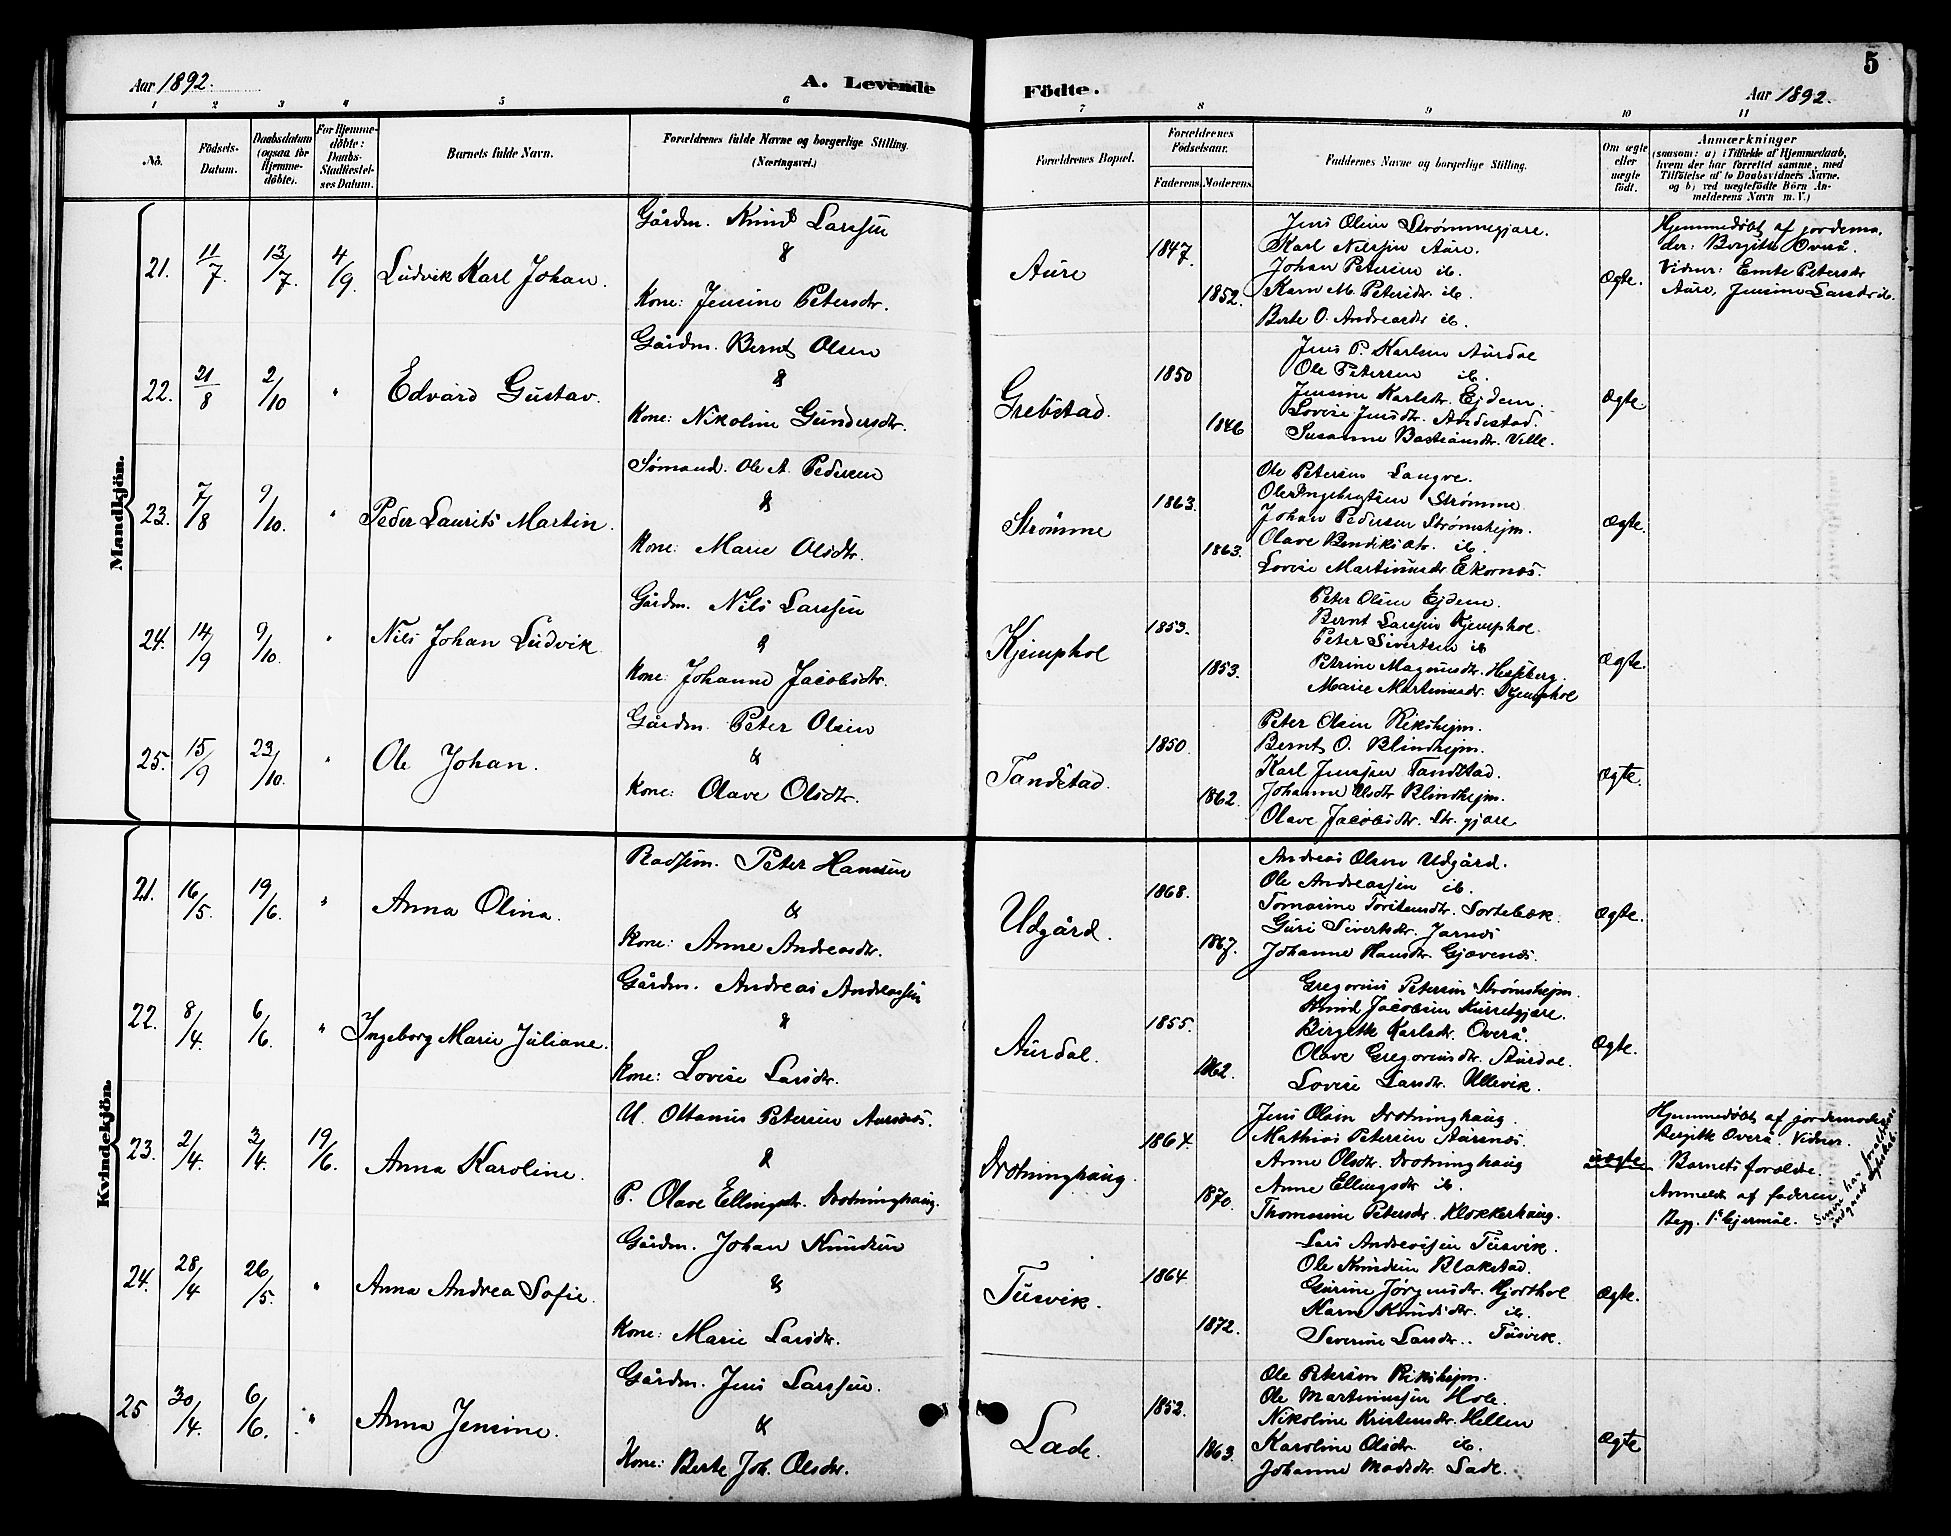 5
Aar 1892.
A. Levende
Födte.
Aar 1892.
1 2 3 4 5 6 7 8 9 10 11
No.
Födsels-Datum.
Daabsdatum (ogsaa for Hjemme-döbte).
For Hjemme-döbte: Daabs-Stadfæstel-ses Datum.
Barnets fulde Navn.
Forældrenes fulde Navne og borgerlige Stilling.
(Næringsvei.)
Forældrenes Bopæl.
Forældrenes Födselsaar.
Faderens. Moderens.
Faddernes Navne og borgerlige Stilling.
Om ægte eller uægte födt.
Anmærkninger
(saasom: a) i Tilfælde af Hjemmedaab,
hvem der har forrettet samme, med
Tilföielse af to Daabsvidners Navne.
og b) ved uægtefödte Börn An-
melderens Navn m. V.)
Mandkjön.
21. 11/7. 13/7. 4/9. Ludvik Karl Johan.
Gårdm. Knud Larssen
&
Kone: Jensine Petersdtr.
Aure
1847.
1852.
Jens Olsen Strømmegjære.
Karl Nilssen Aure.
Johan Petersen ib.
Karn M. Petersdtr. ib.
Berte O. Andreasdtr ib.
Ægte.
Hjemmedøbt af jordemo-
der: Bergitte Overå.
Vidner: Emte Petersdtr
Aure, Jensine Larsdtr ib.
22. 21/8 2/10 " Edvard Gustav.
Gårdm. Bernt Olsen
&
Kone: Nikoline Gundersdtr.
Grebstad.
1850
1846
Jens P. Karlsen Aurdal
Ole Petersen ib.
Jensine Karlsdtr. Ejdem.
Lovise Jensdtr. Andestad.
Susanne Bastiansdtr. Velle.
Ægte
23. 7/8 9/10. " Peder Laurits Martin.
Sømand. Ole A. Pedersen
&
Kone: Marie Olsdtr.
Strømme
1863.
1863.
Ole Petersen Langve.
Ole Ingebrigtsen Strømme
Johan Pedersen Strømshejm.
Olave Bendiksdtr. ib.
Lovise Martinusdtr Ekornæs.
Ægte.
24. 14/9 9/10. " Nils Johan Ludvik
Gårdm. Nils Larssen
&
Kone: Johanne Jacobsdtr.
Kjemphol
1853.
1853.
Peter Olsen Ejdem.
Bernt Larssen Kjemphol.
Peter Sivertsen ib
Petrine Magnusdtr. Hessberg.
Marie Martinusdtr. Kjemphol
Ægte.
25. 15/9 23/10. " Ole Johan.
Gårdm. Peter Olsen
&
Kone: Olave Olsdtr.
Tandstad.
1850.
1862.
Peter Olsen Rikshejm.
Bernt O. Blindhejm.
Karl Jenssen Tandstad.
Johanne Olsdtr Blindhejm.
Olave Jacobsdtr. Str. gjære
Ægte.
Kvindekjön.
21. 16/5. 19/6. " Anna Olina.
Peter Hanssen
&
Kone: Anne Andreasdtr.
Udgård.
1868.
1867.
Andreas Olsen Udgård.
Ole Andreassen ib.
Tomasine Torstensdtr. Sortebæk.
Guri Sivertsdtr. Jarnes
Johanne Hansdtr. Gjævenes.
Ægte.
22. 8/4. 6/6. " Ingeborg Marie Juliane.
Gårdm. Andreas Andreassen
&
Kone: Lovise Larsdtr.
Aurdal.
1855.
1862.
Gregorius Petersen Strømshejm.
Knud Jacobsen Kursetgjære.
Birgitte Karlsdtr. Overå.
Olave Gregoriusdtr. Aurdal.
Lovise Larsdtr. Ullevik.
Ægte.
23. 2/4. 3/4. 19/6. Anna Karoline.
U. Ottanius Petersen Aursnes.
&
P. Olave Ellingsdtr. Drotninghaug.
Drotninghaug.
1864.
1870.
Jens Olsen Drotninghaug.
Mathias Petersen Aursnes.
Anne Olsdtr. Drotninghaug
Anne Ellingsdtr ib.
Thomasine Petersdtr. Klokkerhaug.
uægte
Hjemmedøbt af jordemoder
Bergitte Overå. Vidner.
Barnets forældre.
Anmeldt af faderen
Begg. 1ste lejermål.
Senere har forældrene indgaaet ægteskab.
24. 28/4 26/5. " Anna Andrea Sofie.
Gårdm. Johan Knudsen
&
Kone: Marie Larsdtr.
Tusvik.
1864
1872.
Lars Andreassen Tusvik.
Ole Knudsen Blakstad.
Gurine Jørgensdtr. Hjorthol
Karn Knudsdtr. ib.
Severine Larsdtr.. Tusvik.
Ægte.
25 30/4. 6/6. " Anna Jensine.
Gårdm. Jens Larssen.
&
Kone: Berte Joh. Olsdtr.
Lade.
1852.
1863.
Ole Petersen Rikshejm.
Ole Martinussen Hole.
Nikoline Kristensdtr. Hellen
Karoline Olsdtr. ib.
Johanne Madsdtr. Lade.
Ægte